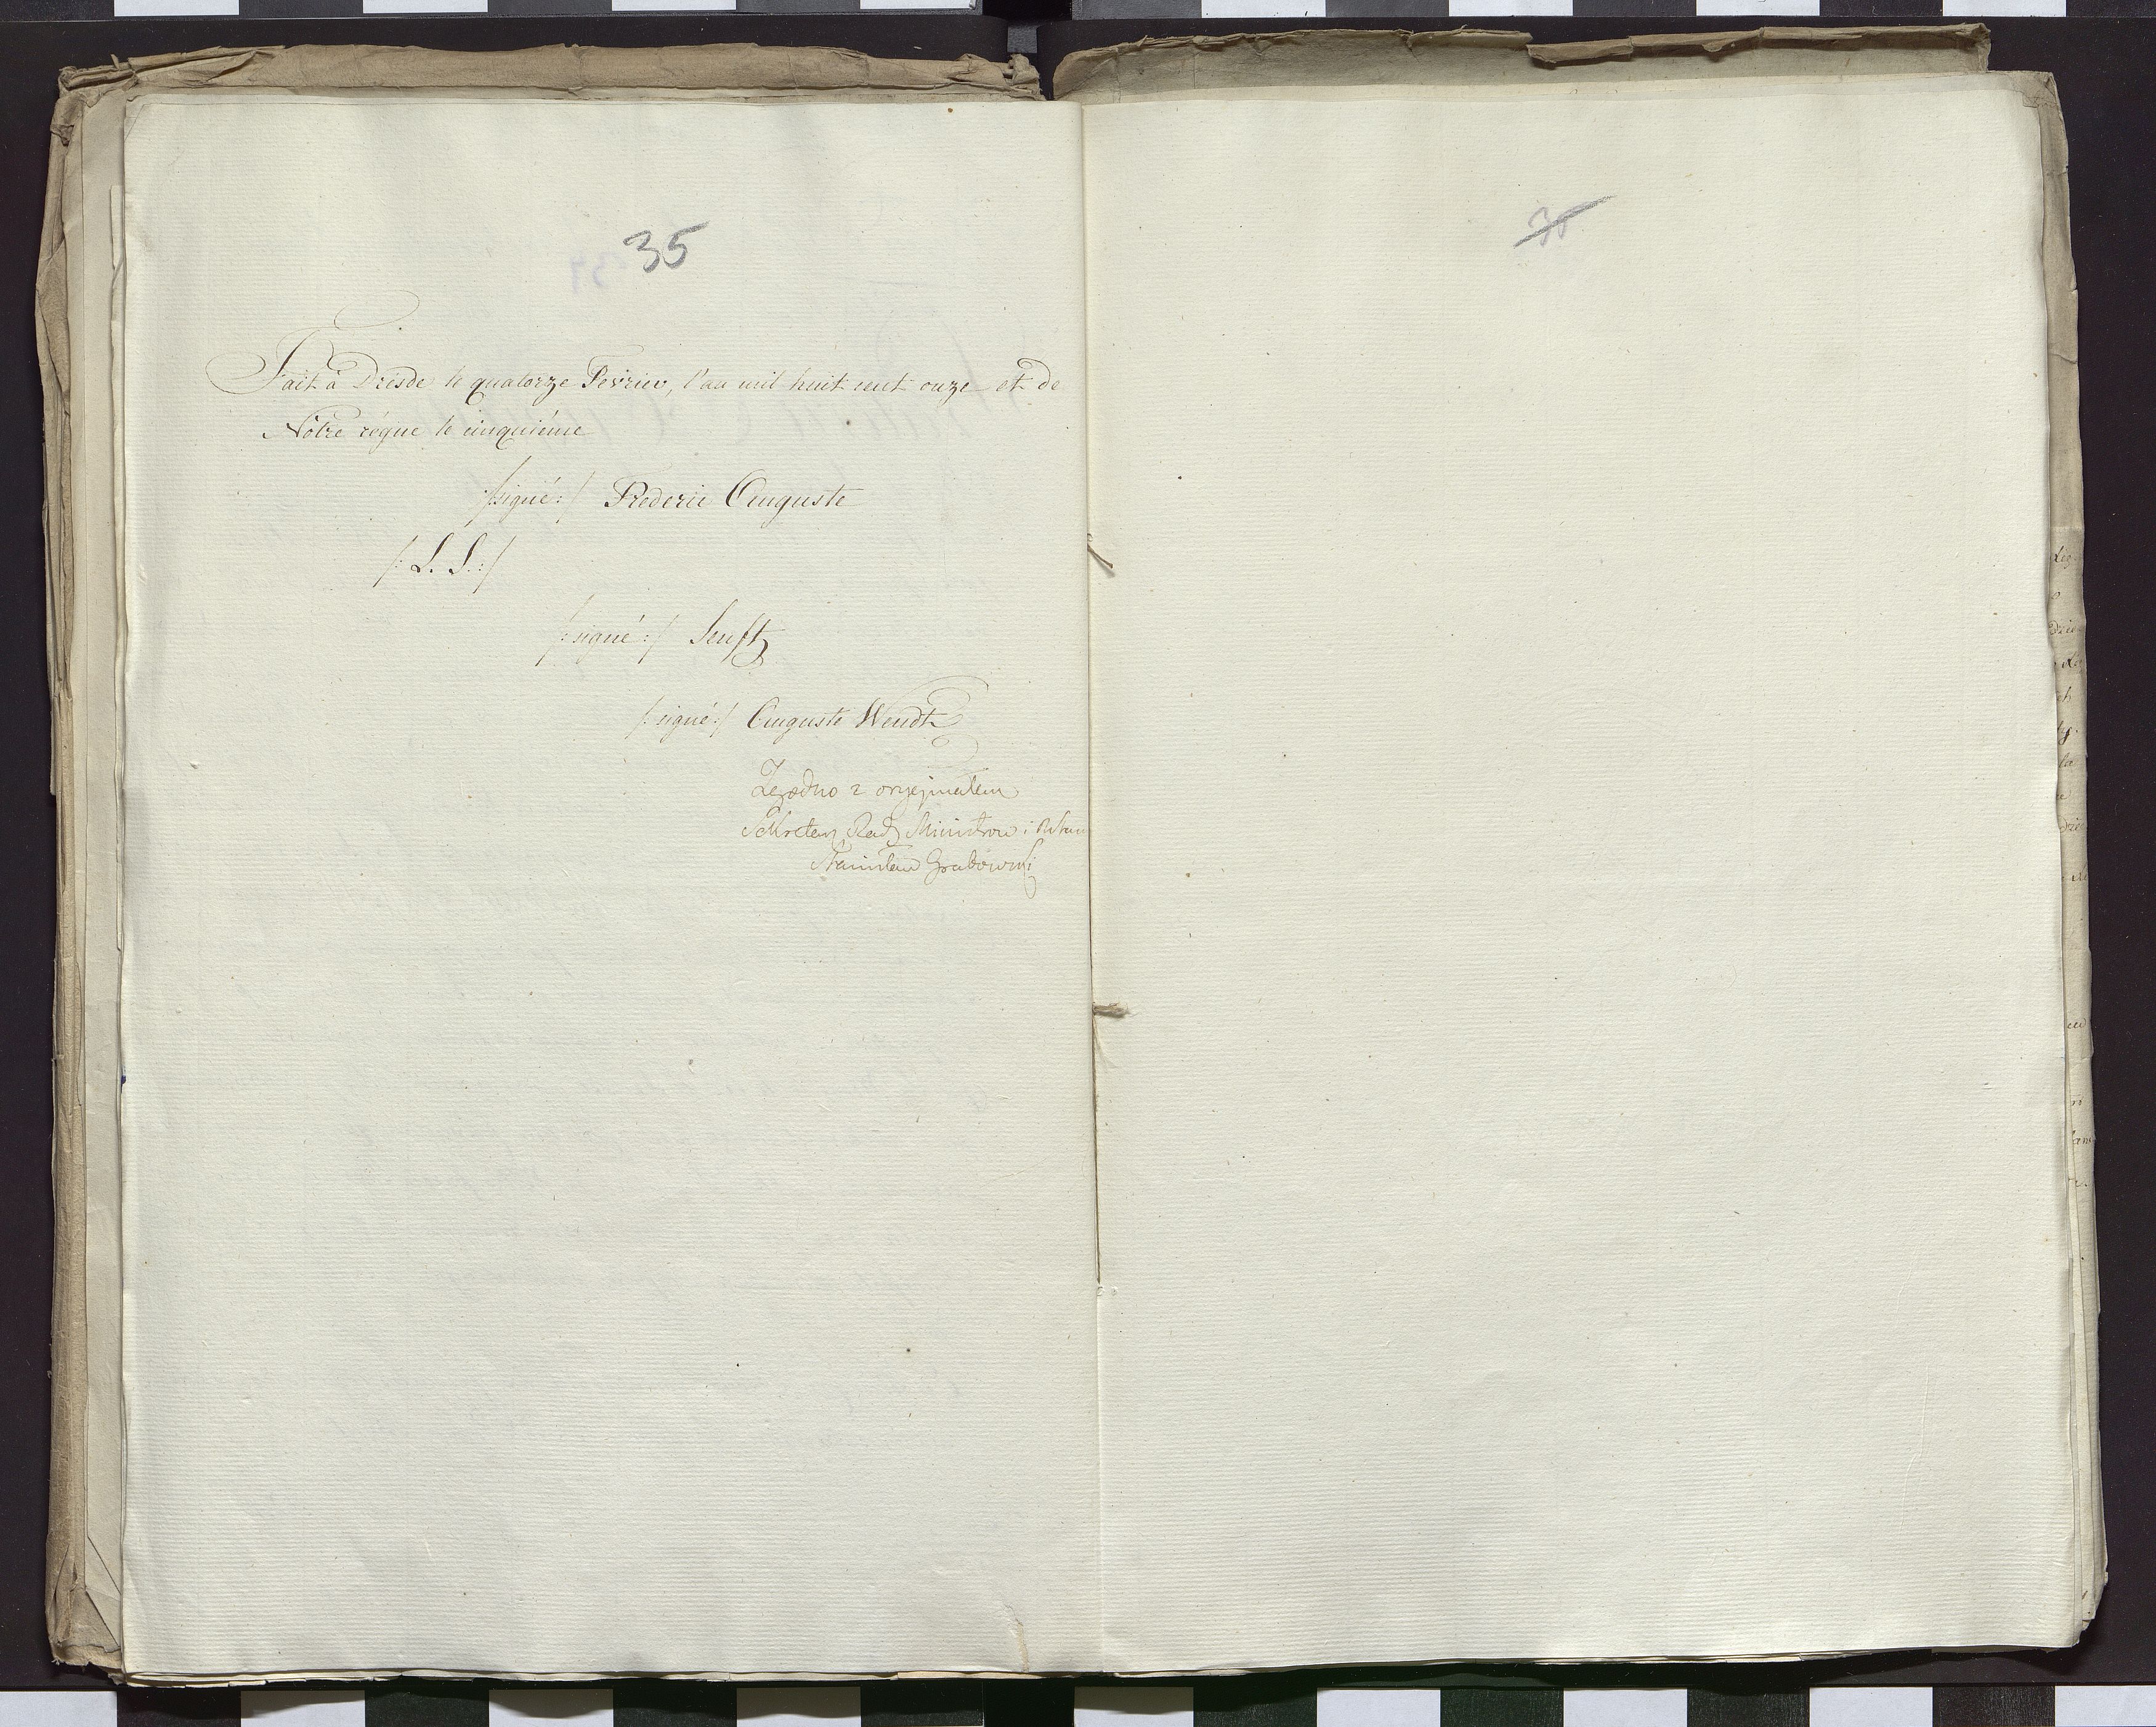 35
Fait à Dresde le quatorze Fevrier, l'an mil huit cent onze et de
Notre régne le cinquiéme
/:signé:/ Frederic Auguste
/: L. S.:/
/:signé:/ Senfft
/:signé:/ Auguste Wendt
Zgodno z oryginałem
Sekretarz Rady Ministrow i Stanu
Stanisław Grabowski